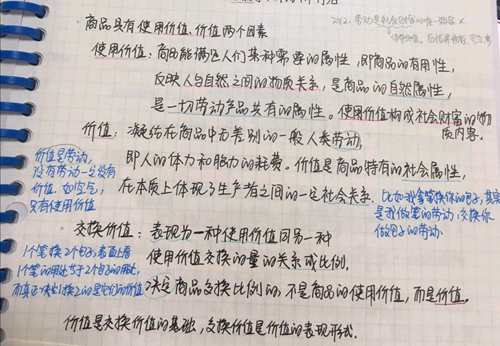 商品具有使用价值、价值两个因素
使用价值：商品能满足人们某种需要的属性，即商品的有用性，
反映人与自然之间的物质关系，是商品的自然属性，
是一切劳动产品共有的属性。使用价值构成社会财富的物
质内容。
价值：凝结在商品中无差别的一般人类劳动，
即人的体力和脑力的耗费。价值是商品特有的社会属性，
在本质上体现了生产者之间的一定社会关系.
价值是劳动，
没有劳动一定没有
价值.如空气，
只有使用价值
比如我拿笔换你的包子，其实
是我做笔的劳动，交换你
做包子的劳动.
交换价值：表现为一种使用价值同另一种
使用价值交换的量的关系或比例.
决定商品交换比例的，不是商品的使用价值，而是价值.
1个笔换2个包子，表面上看
1个笔的用处等于2个包子的用处，
而真正决定1换2的是它们的价值
价值是交换价值的基础，交换价值是价值的表现形式.